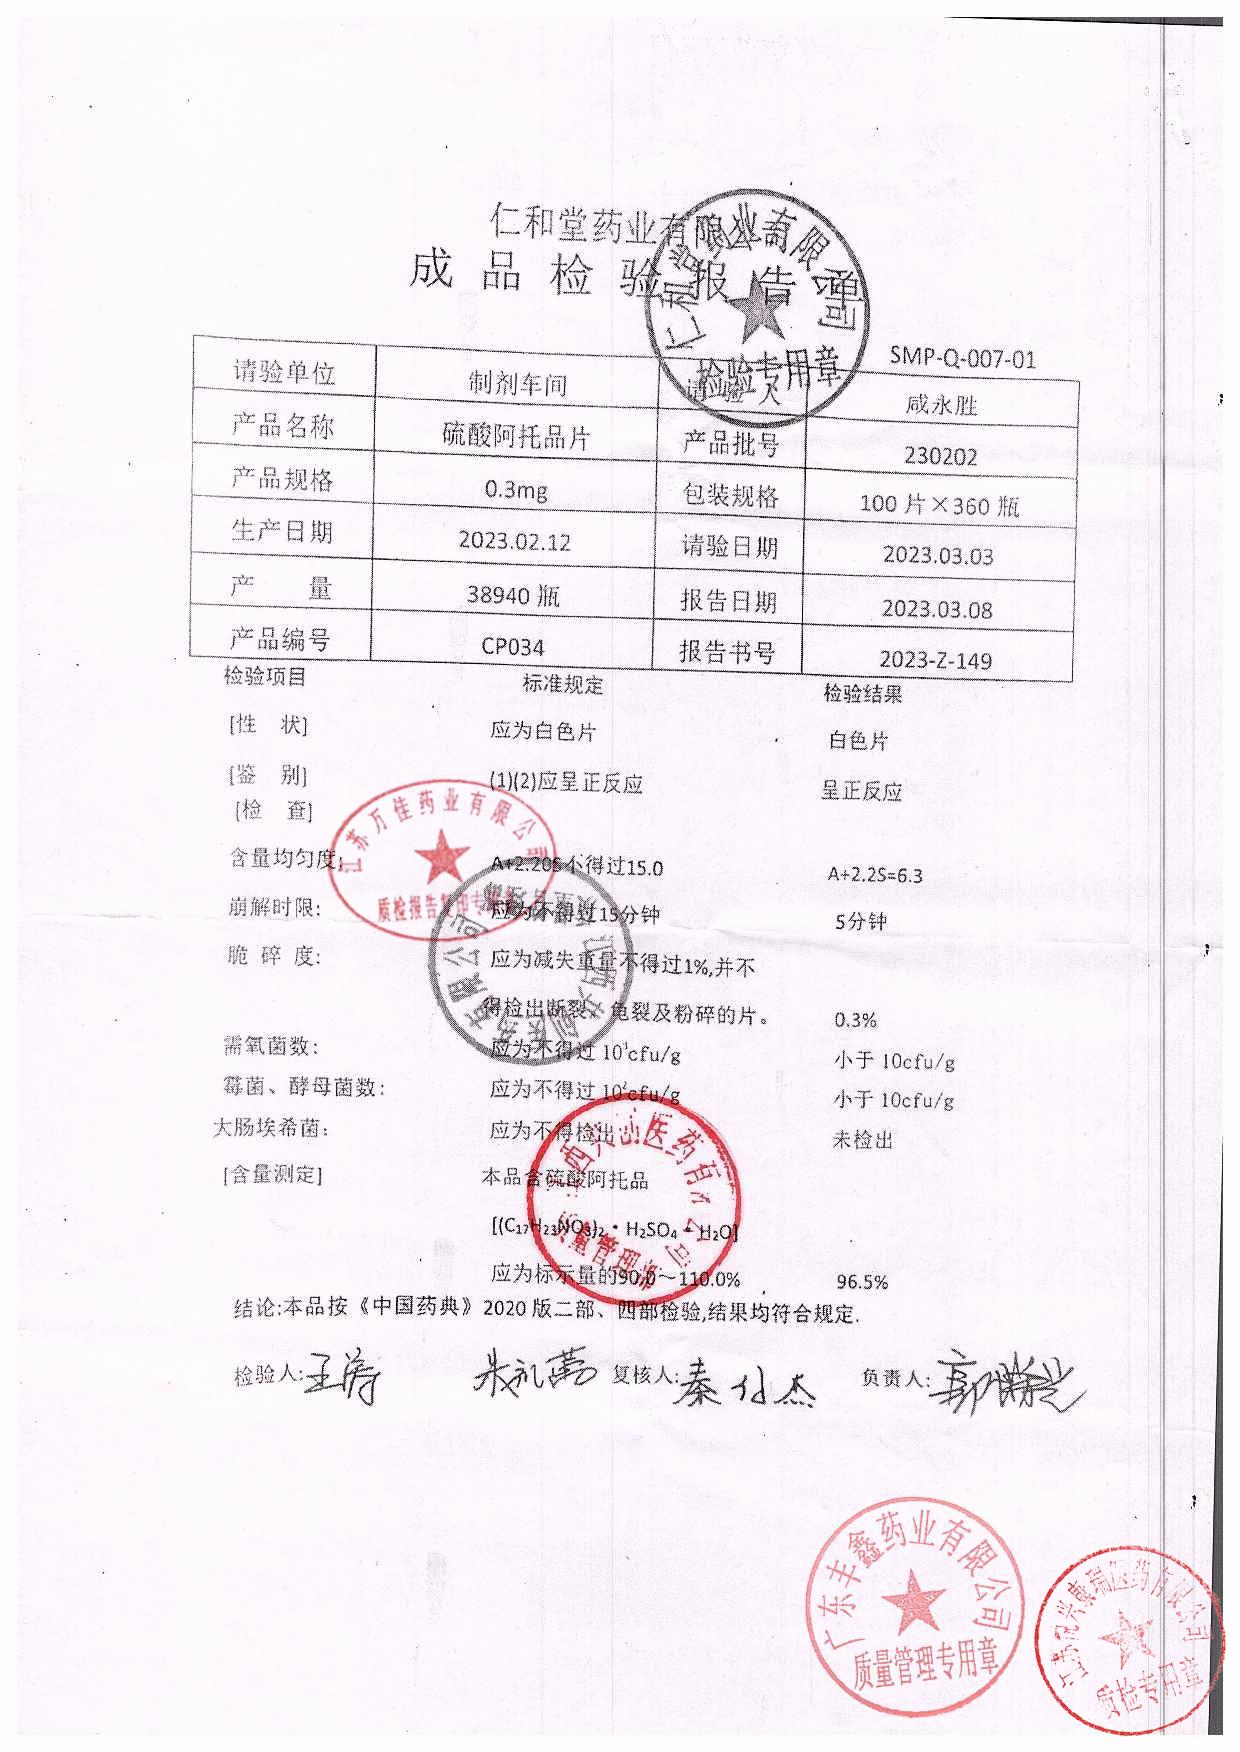 仁和堂药业有限公司
成品检验报告单
SMP-Q-007-01
请验单位 制剂车间 请验人 咸永胜
产品名称 硫酸阿托品片 产品批号 230202
产品规格 0.3mg 包装规格 100片×360瓶
生产日期 2023.02.12 请验日期 2023.03.03
产 量 38940瓶 报告日期 2023.03.08
产品编号 CP034 报告书号 2023-Z-149
检验项目 标准规定 检验结果
[性 状] 应为白色片 白色片
[鉴 别] (1)(2)应呈正反应 呈正反应
[检 查]
含量均匀度: A+2.20S不得过15.0 A+2.2S=6.3
崩解时限: 应为不得过15分钟 5分钟
脆 碎 度: 应为减失重量不得过1%,并不
得检出断裂、龟裂及粉碎的片。 0.3%
需氧菌数: 应为不得过10³cfu/g 小于10cfu/g
霉菌、酵母菌数: 应为不得过10²cfu/g 小于10cfu/g
大肠埃希菌: 应为不得检出 未检出
[含量测定] 本品含硫酸阿托品
[(C₁₇H₂₃NO₃)₂·H₂SO₄·H₂O]
应为标示量的90.0～110.0% 96.5%
结论:本品按《中国药典》2020版二部、四部检验,结果均符合规定.
检验人:王涛 朱礼 复核人:秦仆杰 负责人:郭
仁和堂药业有限公司
检验专用章
江苏万佳药业有限公司
质检报告复印专用章
有限公司
医药有限公司
质量管理部
广东丰鑫药业有限公司
质量管理专用章
兴康瑞医药有限公司
质检专用章